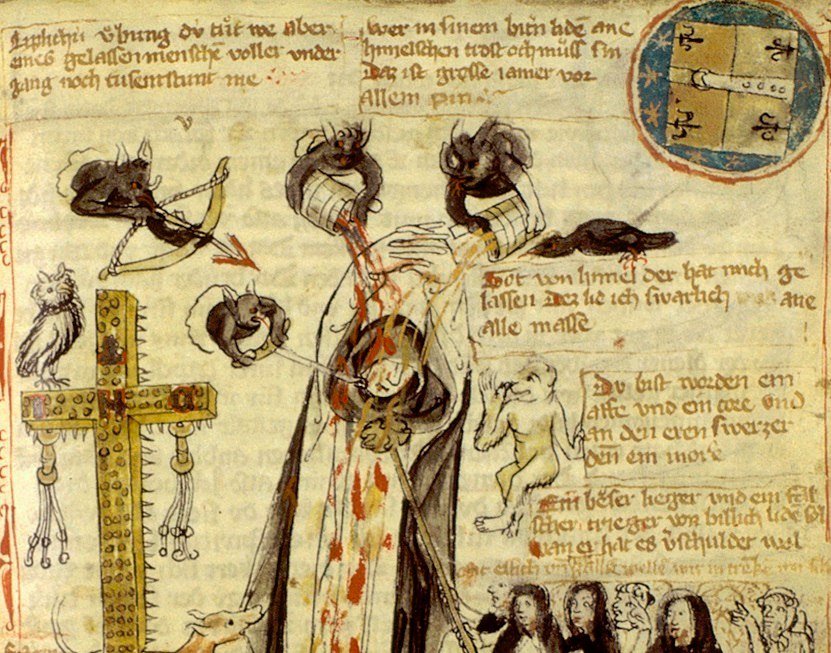 Liplichú v̊bung dv tůt we Aber
eines gelassen menschē voller vnder
gang noch tusentstunt me
Swer in sinem bittrē lidē ane
himelschen trost och můss sin
Daz ist grosse iamer vor
Allem pin
Got von himel der hat mich ge
lassen Dez lid ich swarlich ane
alle masse
Dv bist worden ein
affe vnd ein tore vnd
an den eren swerzer
denn ein more
Ein bȯser lieger vnd ein fal
scher trieger wan billich lidē sol
wan er hat es v̓schuldet wol